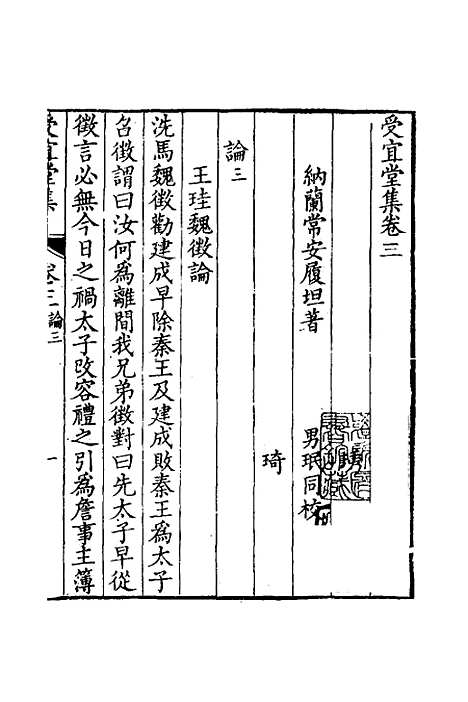 受宜堂集卷三
納蘭常安履坦著
男珉同校
琦
論三
王珪魏徵論
洗馬魏徵勸建成早除秦王及建成敗秦王為太子
召徵謂曰汝何為離間我兄弟徵對曰先太子早從
徵言必無今日之禍太子改容禮之引為詹事主簿
受宜堂集
卷三論三
一